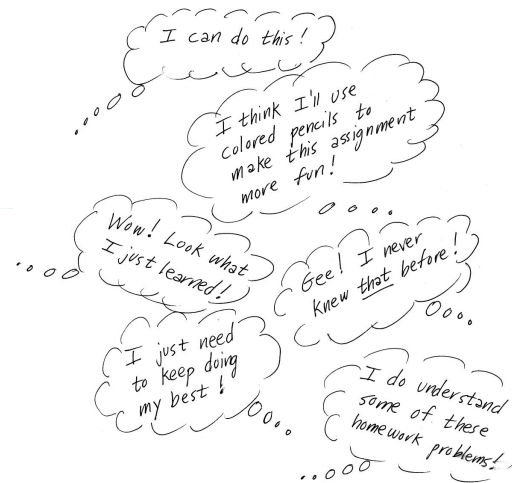 I can do this!
I think I'll use
colored pencils to
make this assignment
more fun!
Wow! Look what
I just learned!
Gee! I never
knew that before!
I just need
to keep doing
my best!
I do understand
some of these
homework problems!